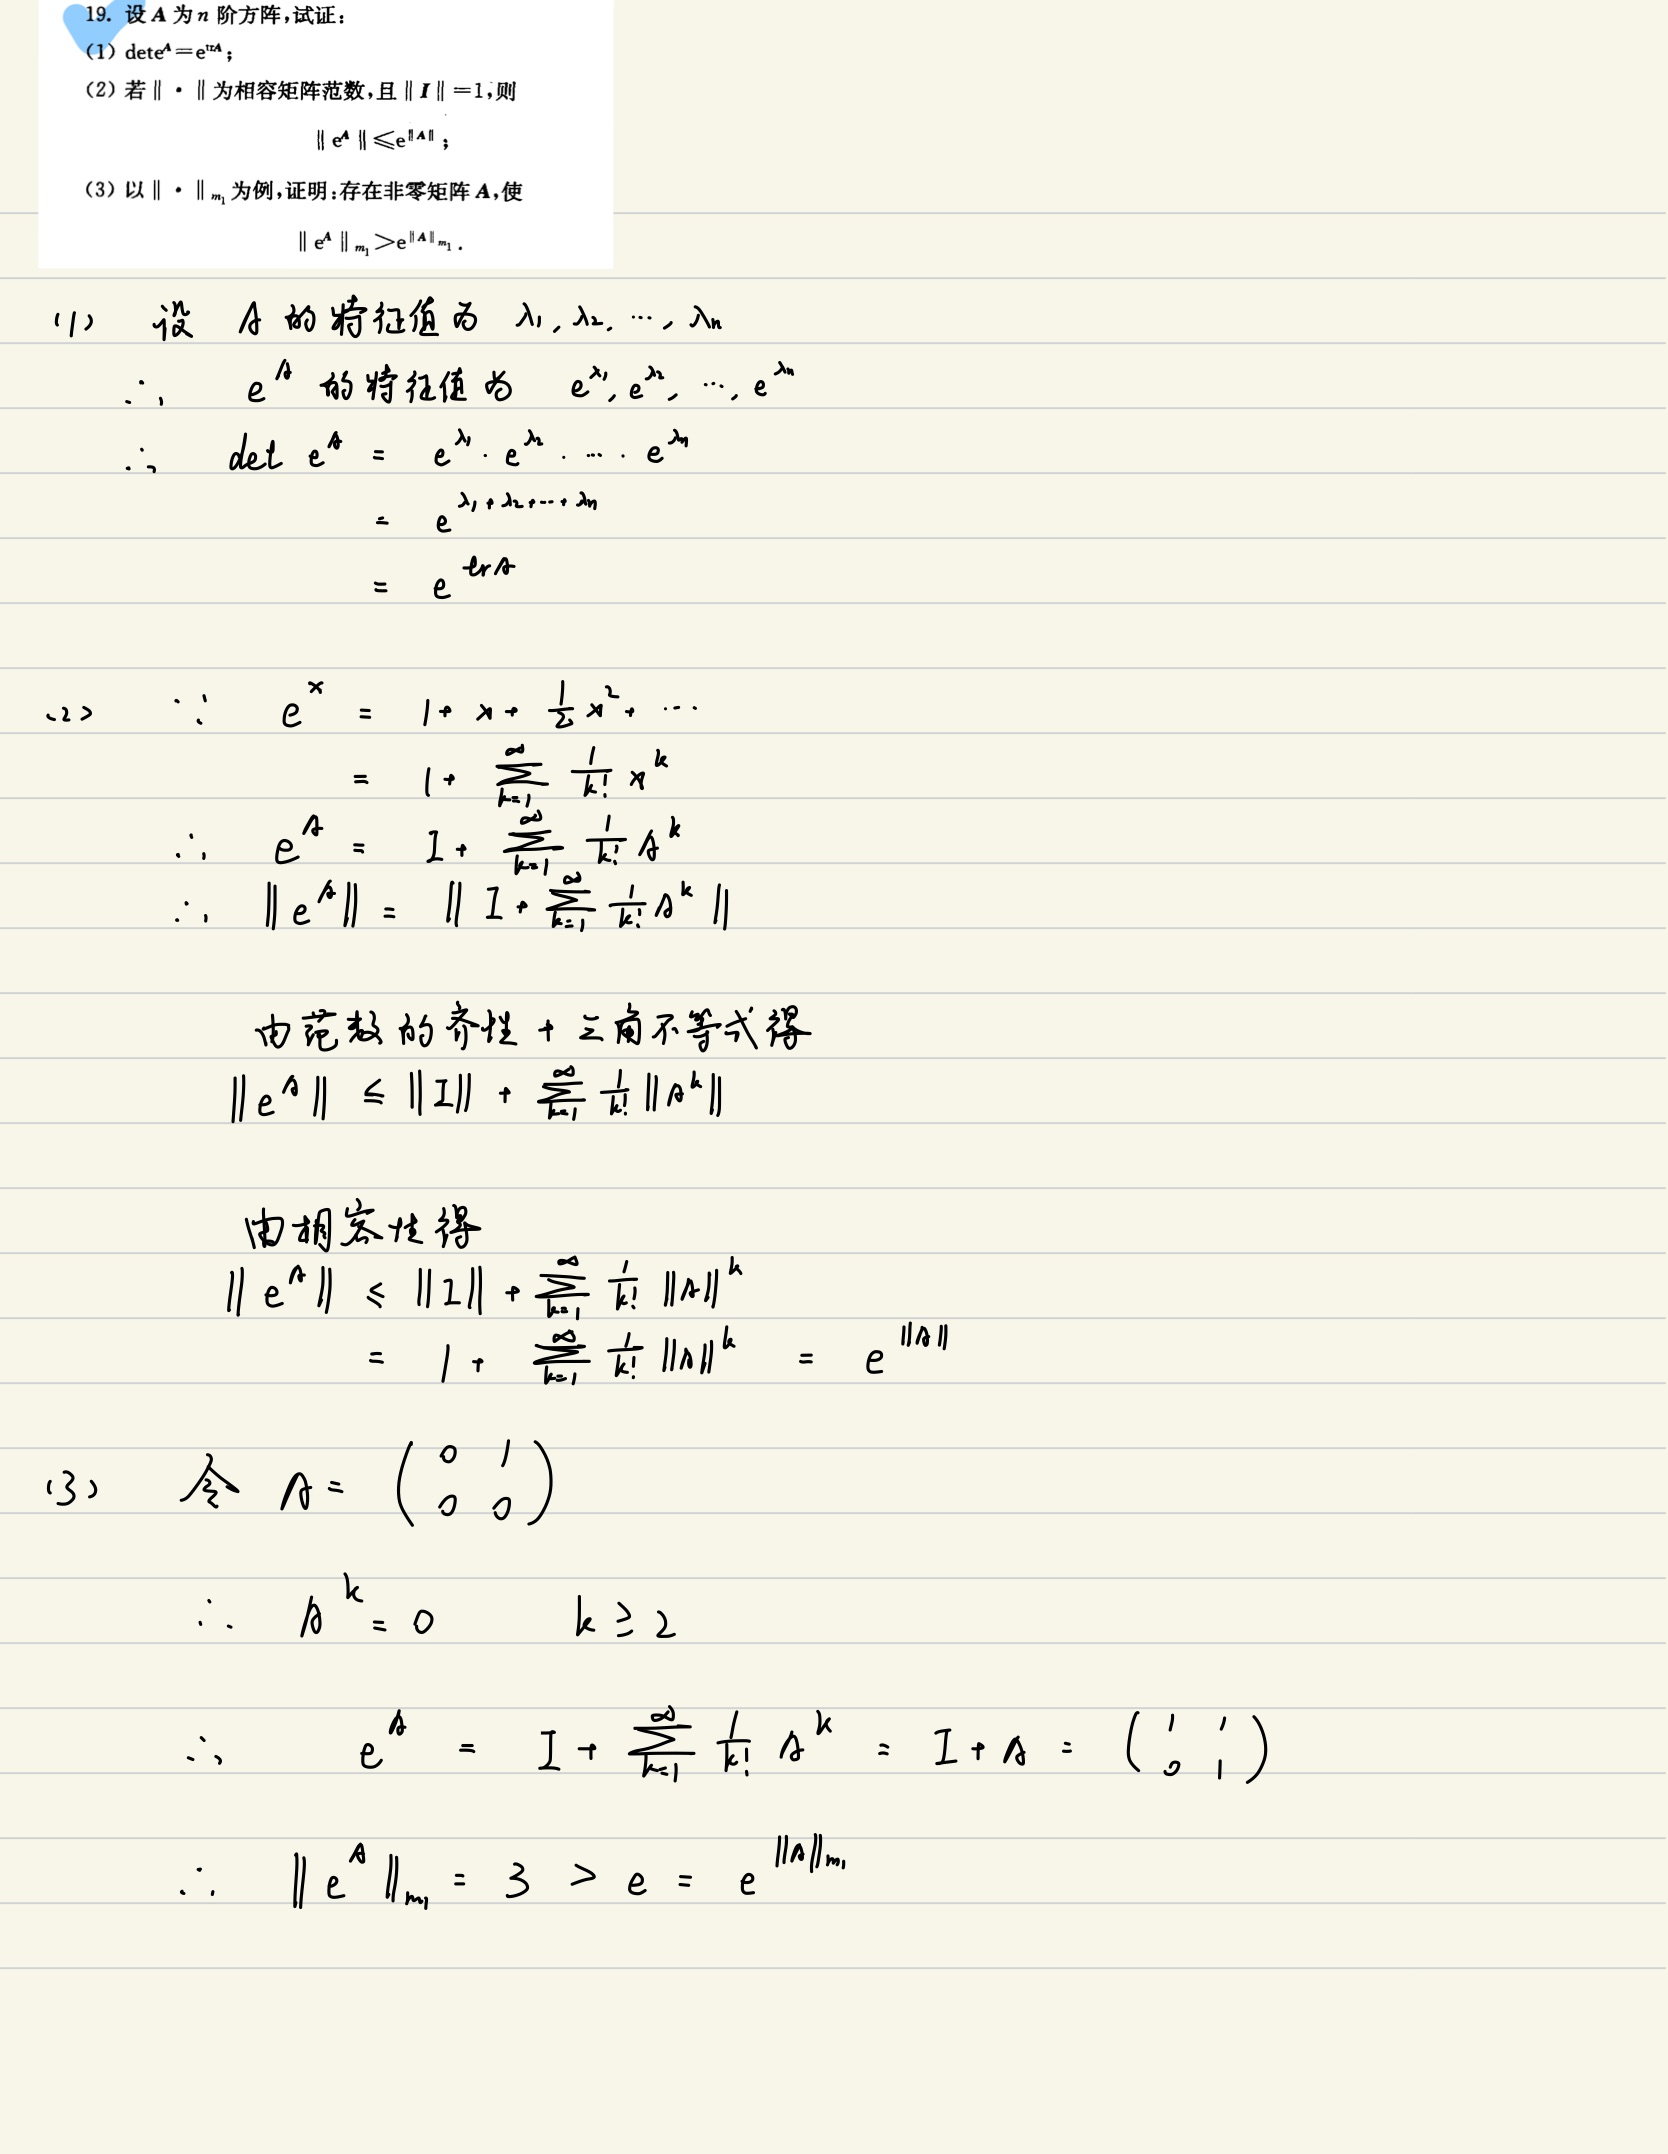 19. 设 A 为 n 阶方阵,试证:
(1) det e^A = e^{trA};
(2) 若 ‖·‖ 为相容矩阵范数,且 ‖I‖=1,则
‖e^A‖ ≤ e^{‖A‖};
(3) 以 ‖·‖_{m₁} 为例,证明:存在非零矩阵 A,使
‖e^A‖_{m₁} > e^{‖A‖_{m₁}}.
(1) 设 A 的特征值为 λ₁, λ₂, ⋯, λₙ
∴ e^A 的特征值为 e^{λ₁}, e^{λ₂}, ⋯, e^{λₙ}
∴ det e^A = e^{λ₁} · e^{λ₂} · ⋯ · e^{λₙ}
= e^{λ₁+λ₂+⋯+λₙ}
= e^{trA}
(2) ∵ e^x = 1 + x + 1/2 x² + ⋯
= 1 + ∑_{k=1}^{∞} 1/k! x^k
∴ e^A = I + ∑_{k=1}^{∞} 1/k! A^k
∴ ‖e^A‖ = ‖ I + ∑_{k=1}^{∞} 1/k! A^k ‖
由范数的齐性 + 三角不等式得
‖e^A‖ ≤ ‖I‖ + ∑_{k=1}^{∞} 1/k! ‖A^k‖
由相容性得
‖e^A‖ ≤ ‖I‖ + ∑_{k=1}^{∞} 1/k! ‖A‖^k
= 1 + ∑_{k=1}^{∞} 1/k! ‖A‖^k = e^{‖A‖}
(3) 令 A = (0 1
0 0)
∴ A^k = 0 k ≥ 2
∴ e^A = I + ∑_{k=1}^{∞} 1/k! A^k = I + A = (1 1
0 1)
∴ ‖e^A‖_{m₁} = 3 > e = e^{‖A‖_{m₁}}